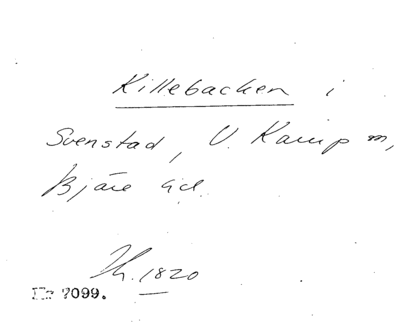 Killebacken i
Svenstad, V. Karup sn,
Bjäre hd.
Th. 1820
7099.